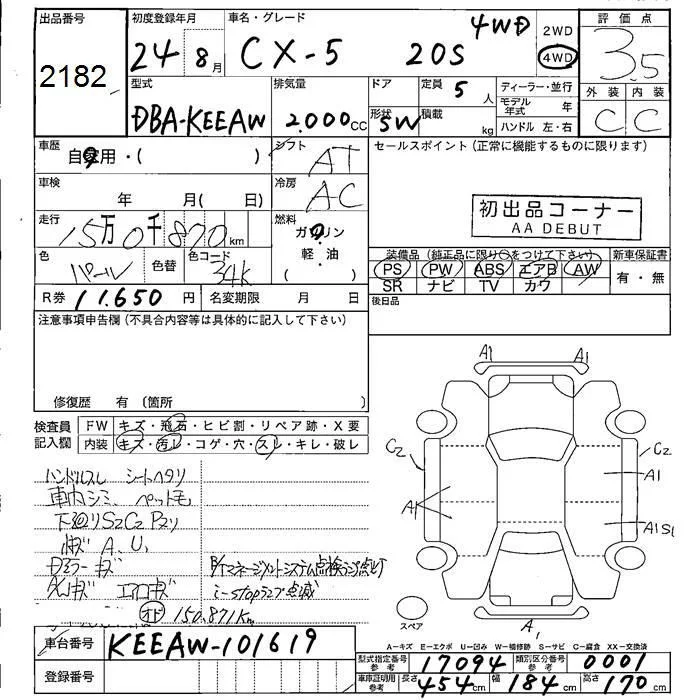 出品番号 初度登録年月 車名・グレード 評価点
2182 24年8月 CX-5 20S 4WD 2WD 4WD 3.5
型式 排気量 ドア 定員 5人 ディーラー・並行 外装 内装
DBA-KEEAW 2.000cc 形状 SW 積載 kg モデル年式 年 ハンドル 左・右 C C
車歴 自家用・( ) シフト AT セールスポイント(正常に機能するものに限ります)
車検 年 月( 日) 冷房 AC
初出品コーナー
AA DEBUT
走行 15万0千870km 燃料 ガソリン・軽・油 ( )
色 パール 色替 色コード 34K
装備品(純正品に限り○をつけて下さい) 新車保証書
PS PW ABS エアB AW 有・無
SR ナビ TV カワ
R券 11.650円 名変期限 月 日 後日品
注意事項申告欄(不具合内容等は具体的に記入して下さい)
修復歴 有 (箇所 )
検査員記入欄 FW キズ・飛石・ヒビ割・リペア跡・X要
内装 キズ・汚レ・コゲ・穴・スレ・キレ・破レ
ハンドルスレ シートヘタリ
車内シミ、ペットモ
下廻リS2C2P2リ
A.U.
Dミラーキズ
AWキズ エアロキズ
B/Tマネージメントシステム点検ランプ点灯
i-stopランプ点滅
オド 150.871km
A1 A1
C2 C2
A1
A1
A1S1
スペア
A1
A-キズ E-エクボ U-凹み W-補修跡 S-サビ C-腐食 XX-交換済
車台番号 KEEAW-101619
型式指定番号参考 17094 類別区分番号参考 0001
登録番号
車庫証明用参考 長さ 454cm 幅 184cm 高さ 170cm